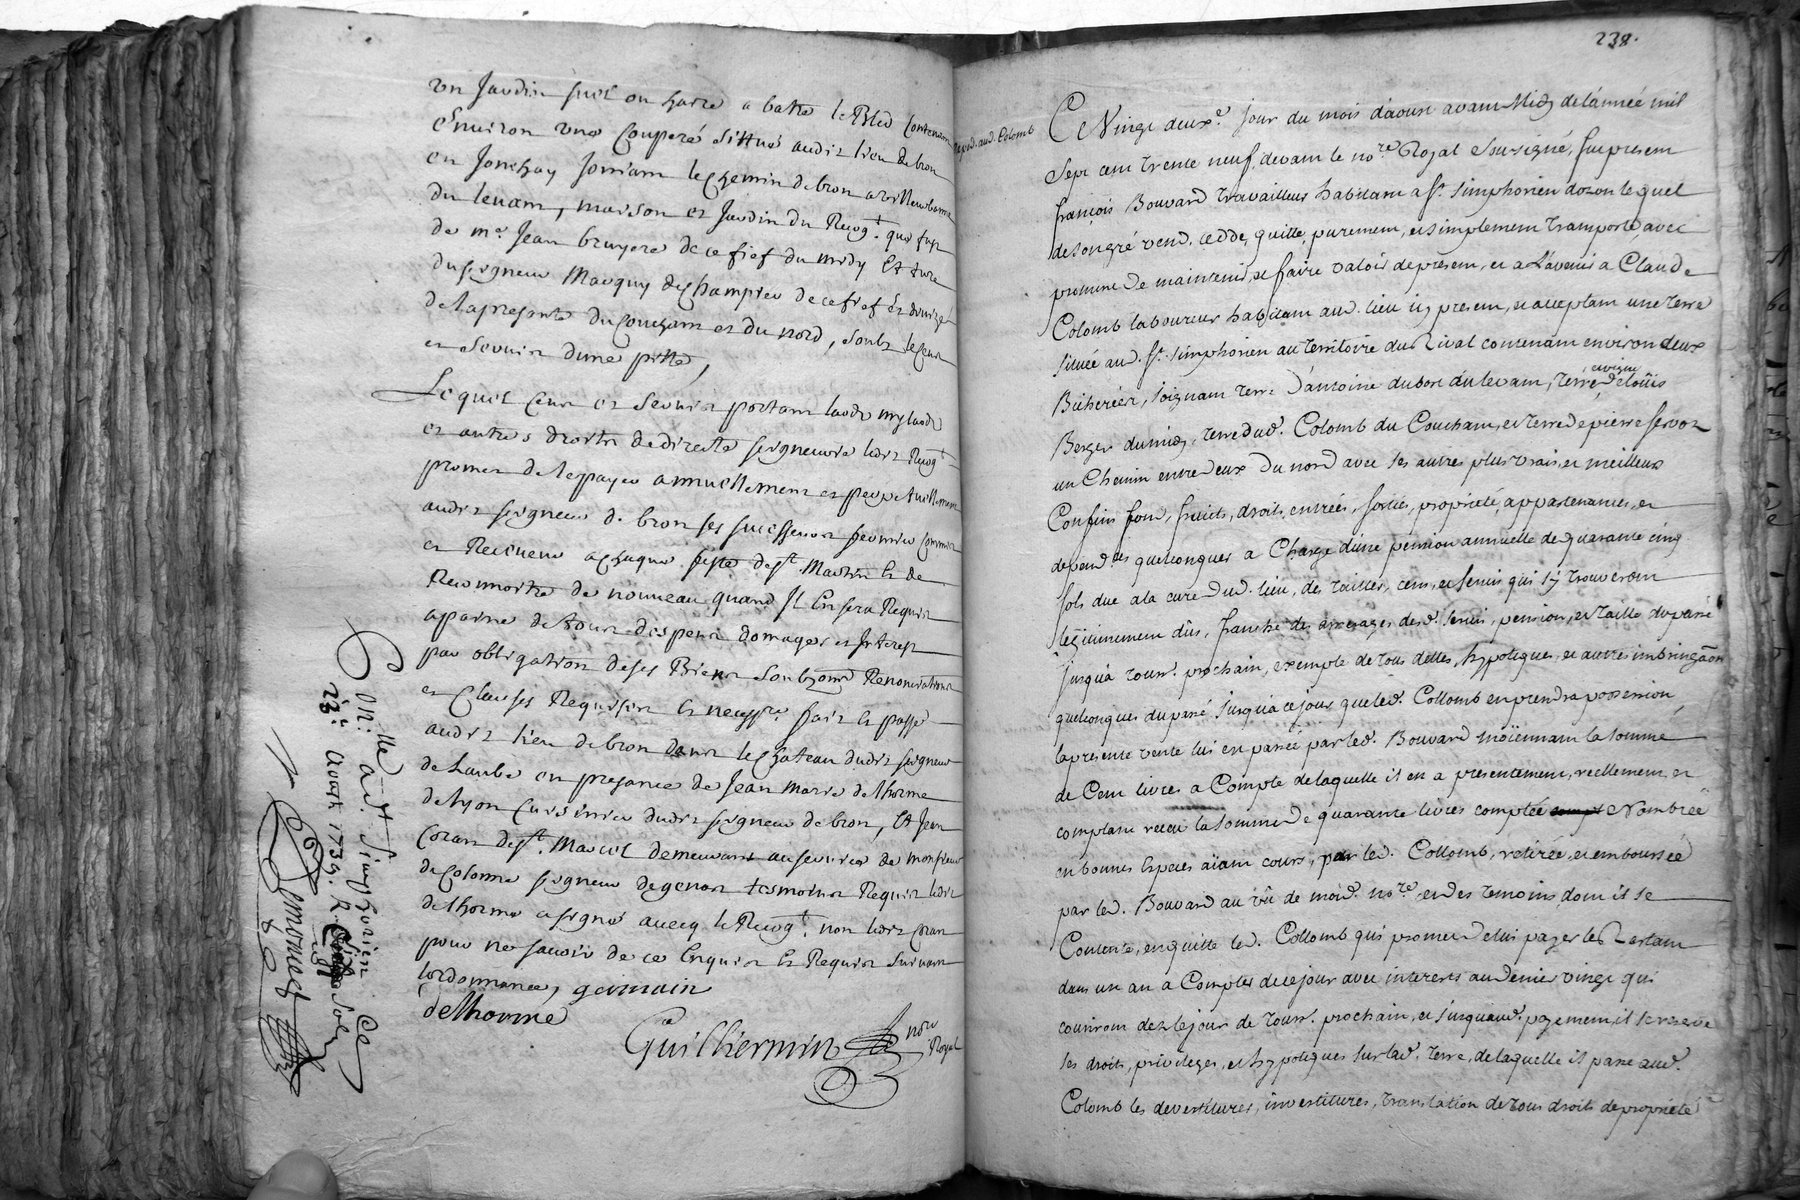 un Jardin suel ou haire a battre le Bled contenant
Environ une Couperé Sittué audit lieu de bron
en Jonchay Joinant le chemin de bron a villeurbanne
du levant, maison et Jardin du Recog.t que fust
de m.e Jean bruyere de ce fief du midy Et terre
du seigneur Marquy de Champieu de ce fief
de la presente du Couchant et du nord, soubz le Cens
et Servis dune pitte,
Lequel Cens et Servis portant laodz mylaodz
et autres droitz de directe seigneurie ledit Recog.t
promet de le payer annuellement et perpetuellement
audit seigneur de bron ses successeurs fermier commis
et Receveur a chaque feste de S.t Martin Et de
Reconnoitre de nouveau quand Il En sera Requis
a paine de tous despens domages et Interest
par obligation de ses Biens Soubzon Renonciations
et Clauses Requises Et necess.res fait Et passé
audit lieu de bron dans le Chateau dudit seigneur
de Laube en presance de Jean Marie delhorme
de lyon Cuisinier dudit seigneur de bron, Et Jean
Coran de S.t Marcel demeurant au service de monsieur
de Colonne seigneur de genost tesmoins Requis ledit
delhorme a signé avecq le Recog.t non ledit Coran
pour ne savoir de ce Enquis Et Requis suivant
lordonnance, germain
delhorme
Guilliermin no.re Royal
Con.lle a S.t Simphorien Ce
22.e Aoust 1739. R. sol
Demouet
238.
vend. aud. Colomb
Ce Vingt deux.e jour du mois d'aoust avant Midy de l'année mil
Sept cent trente neuf, devant le no.re Royal Soussigné, fut present
françois Bouvard travailleur habitant a S.t Simphorien dozon lequel
de son gré vend, cedde, quitte, purement, et simplement transporte, avec
promesse de maintenir, et faire valoir de present, et a L'avenir a Claude
Colomb laboureur habitant aud. lieu icy present, et acceptant une terre
située aud. S.t Simphorien au territoire du Rival contenant environ deux
Bicherées, joignant terre D'antoine dubost du levant, terre et vigne de loüis
Berger du midy, terre dud. Colomb du Couchant, et terre de pierre servoz
un Chemin entre deux du nord avec ses autres plus vrais, et meilleurs
Confins fond, fruits, droits, entrées, sorties, proprieté, appartenances, et
depend.ces quelconques a Charge d'une pension annuelle de quarante cinq
sols due a la cure dud. lieu, des tailles, cens, et servis qui s'y trouveront
legitimement dûs, franche des arrerages desd. servis, pension, et taille du passé
jusqu'a touss.t prochain, exempte de tous dettes, hypoteques, et autres imbringaôns
quelconques du passé jusqu'a ce jour que led. Collomb en prendra possession,
la presente vente lui en passée par led. Bouvard moïennant la somme
de Cent livres a Compte de laquelle il en a presentement, reellement, et
comptant receu la somme de quarante livres comptée Nombrée
en bonnes Especes aïant cours, par led. Collomb, retirée, et emboursée
par led. Bouvard au vû de moid. no.re et des temoins, dont il se
Contente, en quitte led. Collomb qui promet de lui payer le Restant
dans un an a Compter de ce jour avec interests au denier vingt qui
couriront dez le jour de touss.t prochain, et jusqu'aud. payement, il se reserve
ses droits, privileges, et hypoteques sur lad. terre, de laquelle il passe aud.
Colomb les devestitures, investitures, translation de tous droits de proprieté